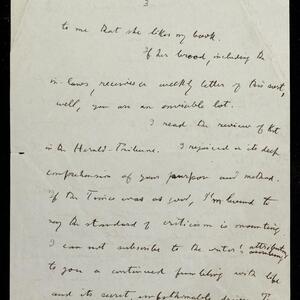 3
to me that she likes my book.
If her brood, including the
in-laws, receives a weekly letter of this sort,
well, you are an enviable lot.
I read the review of
in the Herald-Tribune. I rejoiced in its deep
comprehension of your purpose and method.
If the Times was as good, I'm bound to
say the standard of criticism is mounting.
I can not subscribe to the writer's attributing
to you a continued fumbling with life
and its secret, unfathomable